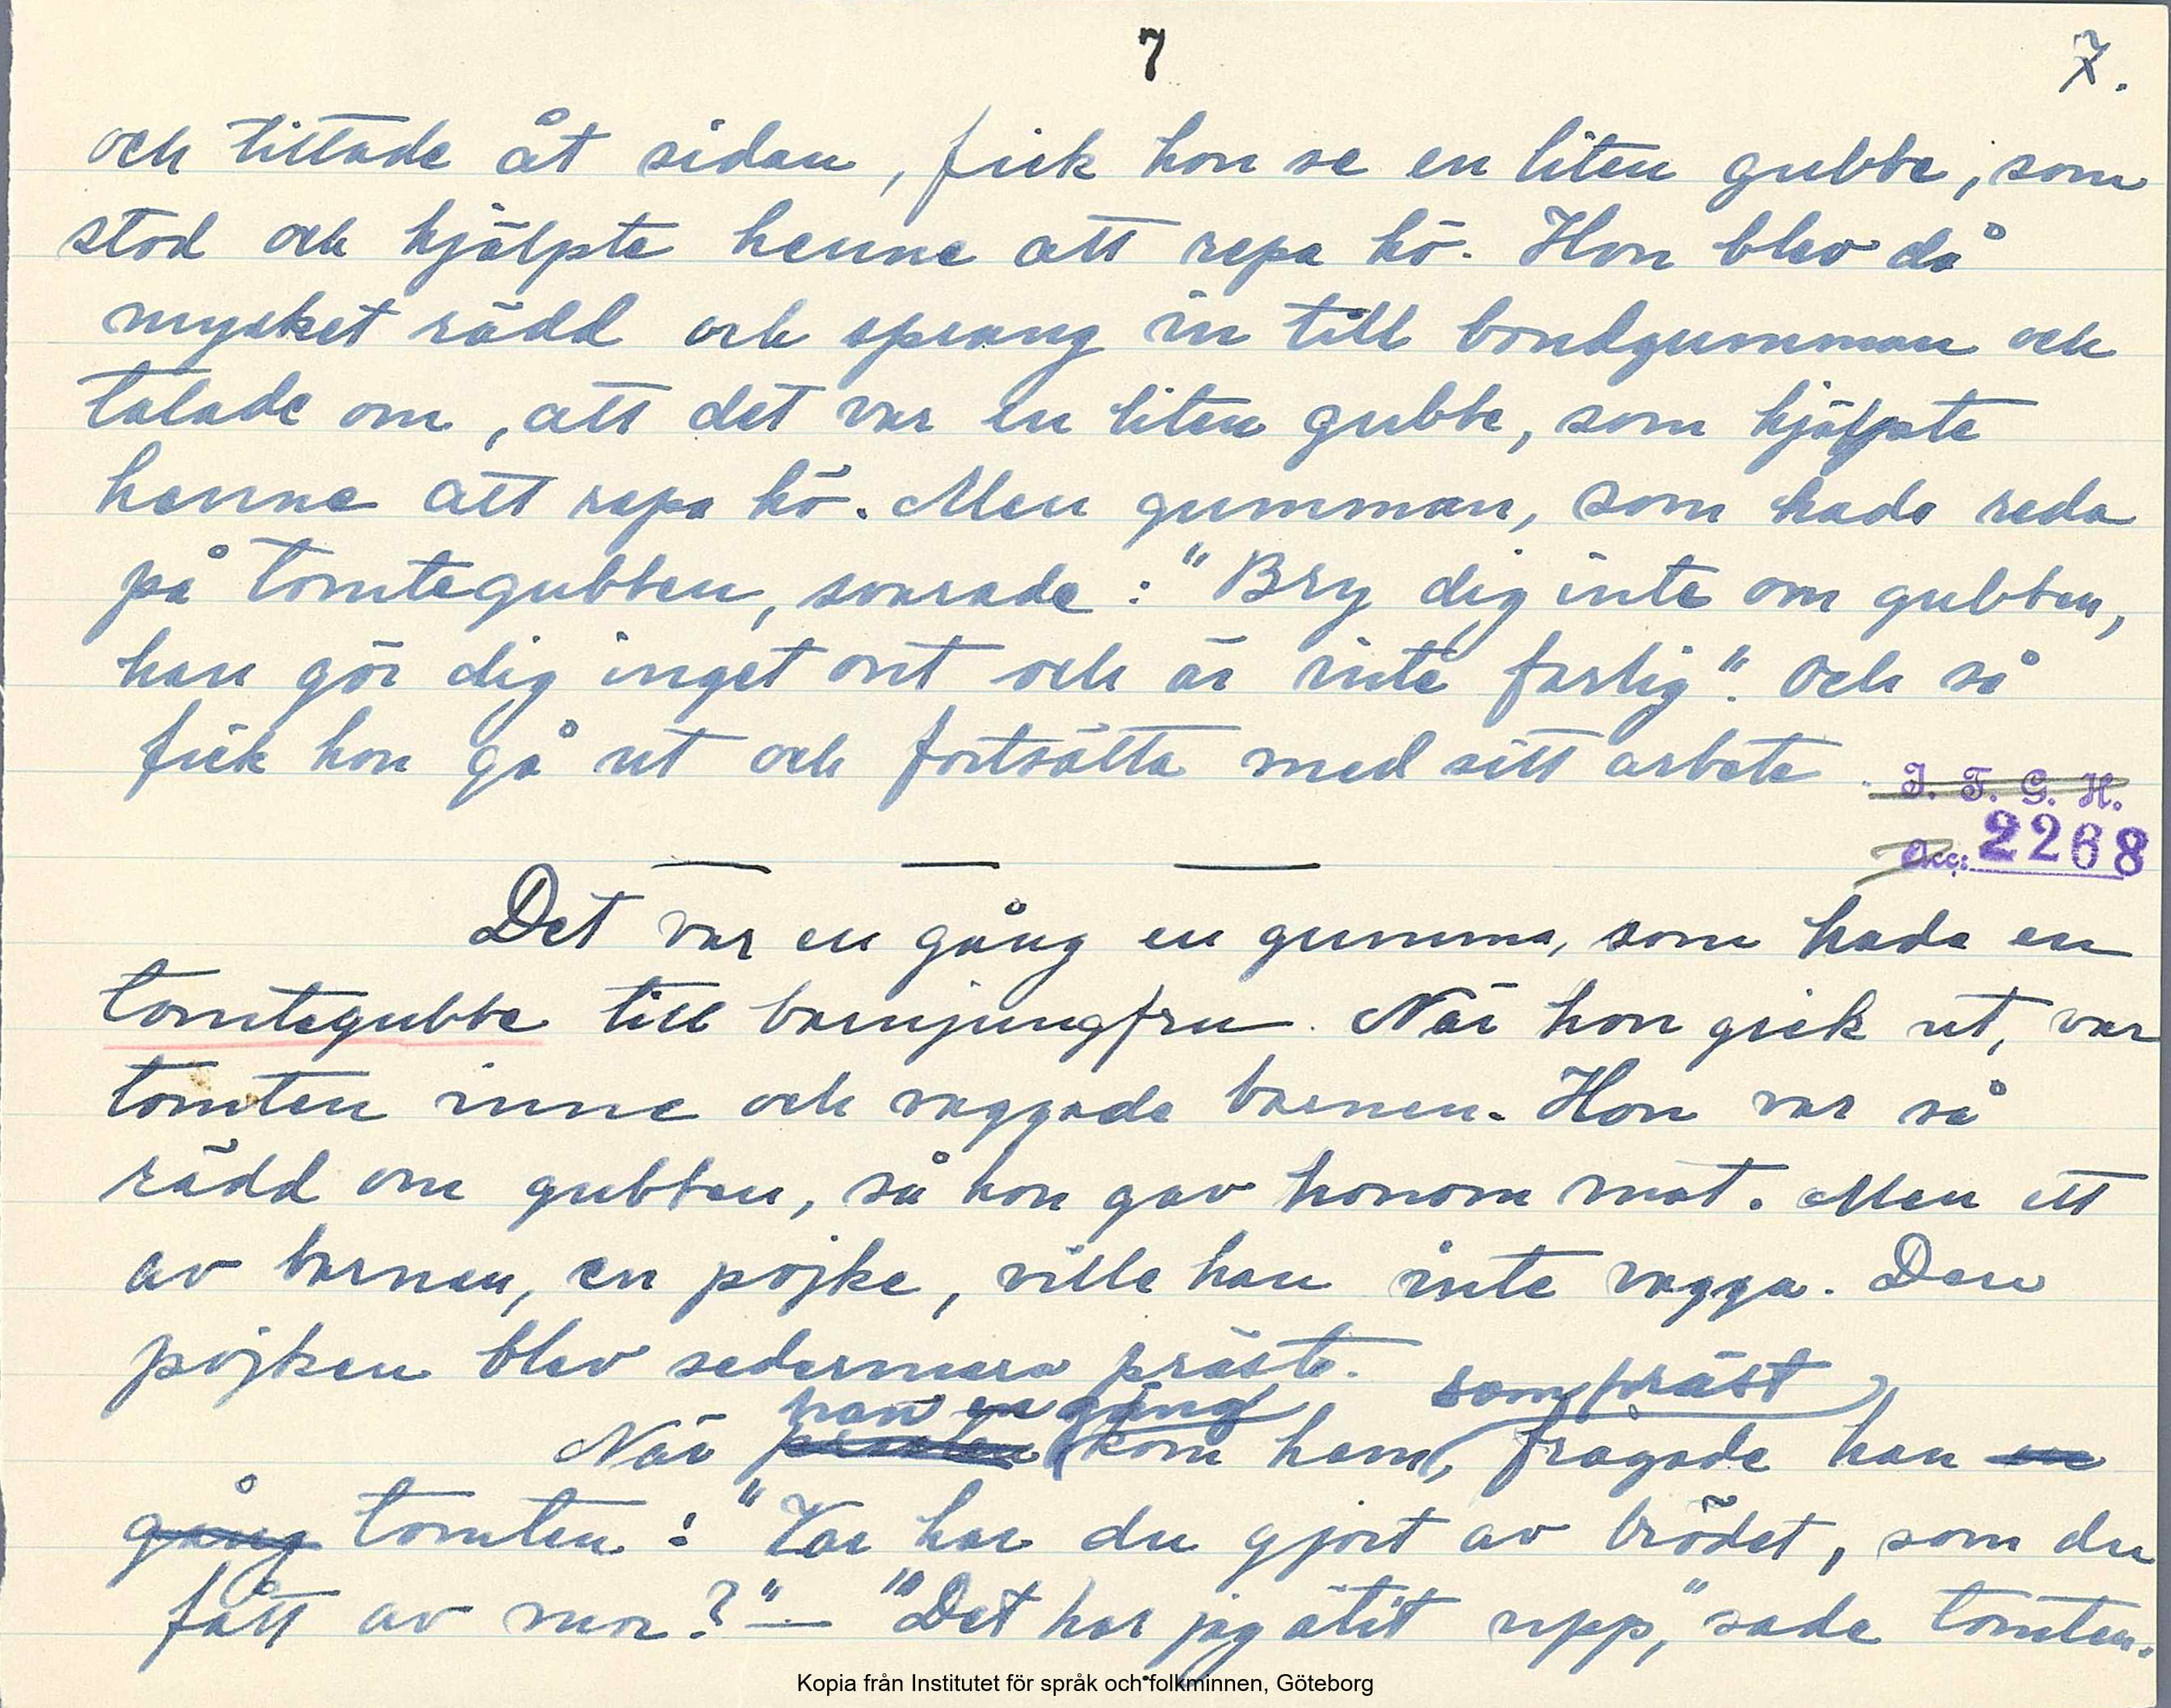 7
7.
och tittade åt sidan, fick hon se en liten gubbe, som
stod och hjälpte henne att repa hö. Hon blev då
mycket rädd och sprang in till bondgumman och
talade om, att det var en liten gubbe, som hjälpte
henne att repa hö. Men gumman, som hade reda
på tomtegubben, svarade: "Bry dig inte om gubben,
han gör dig inget ont och är inte farlig". Och så
fick hon gå ut och fortsätta med sitt arbete.
I. F. G. H.
Acc: 2268
Det var en gång en gumma, som hade en
tomtegubbe till barnjungfru. När hon gick ut, var
tomten inne och vaggade barnen. Hon var så
rädd om gubben, så hon gav honom mat. Men ett
av barnen, en pojke, ville han inte vagga. Den
pojken blev sedermera präst.
han en gång som präst
När prästen kom hem, frågade han en
gång tomten: "Var har du gjort av brödet, som du
fått av mor?" — "Det har jag ätit upp," sade tomten.
Kopia från Institutet för språk och folkminnen, Göteborg